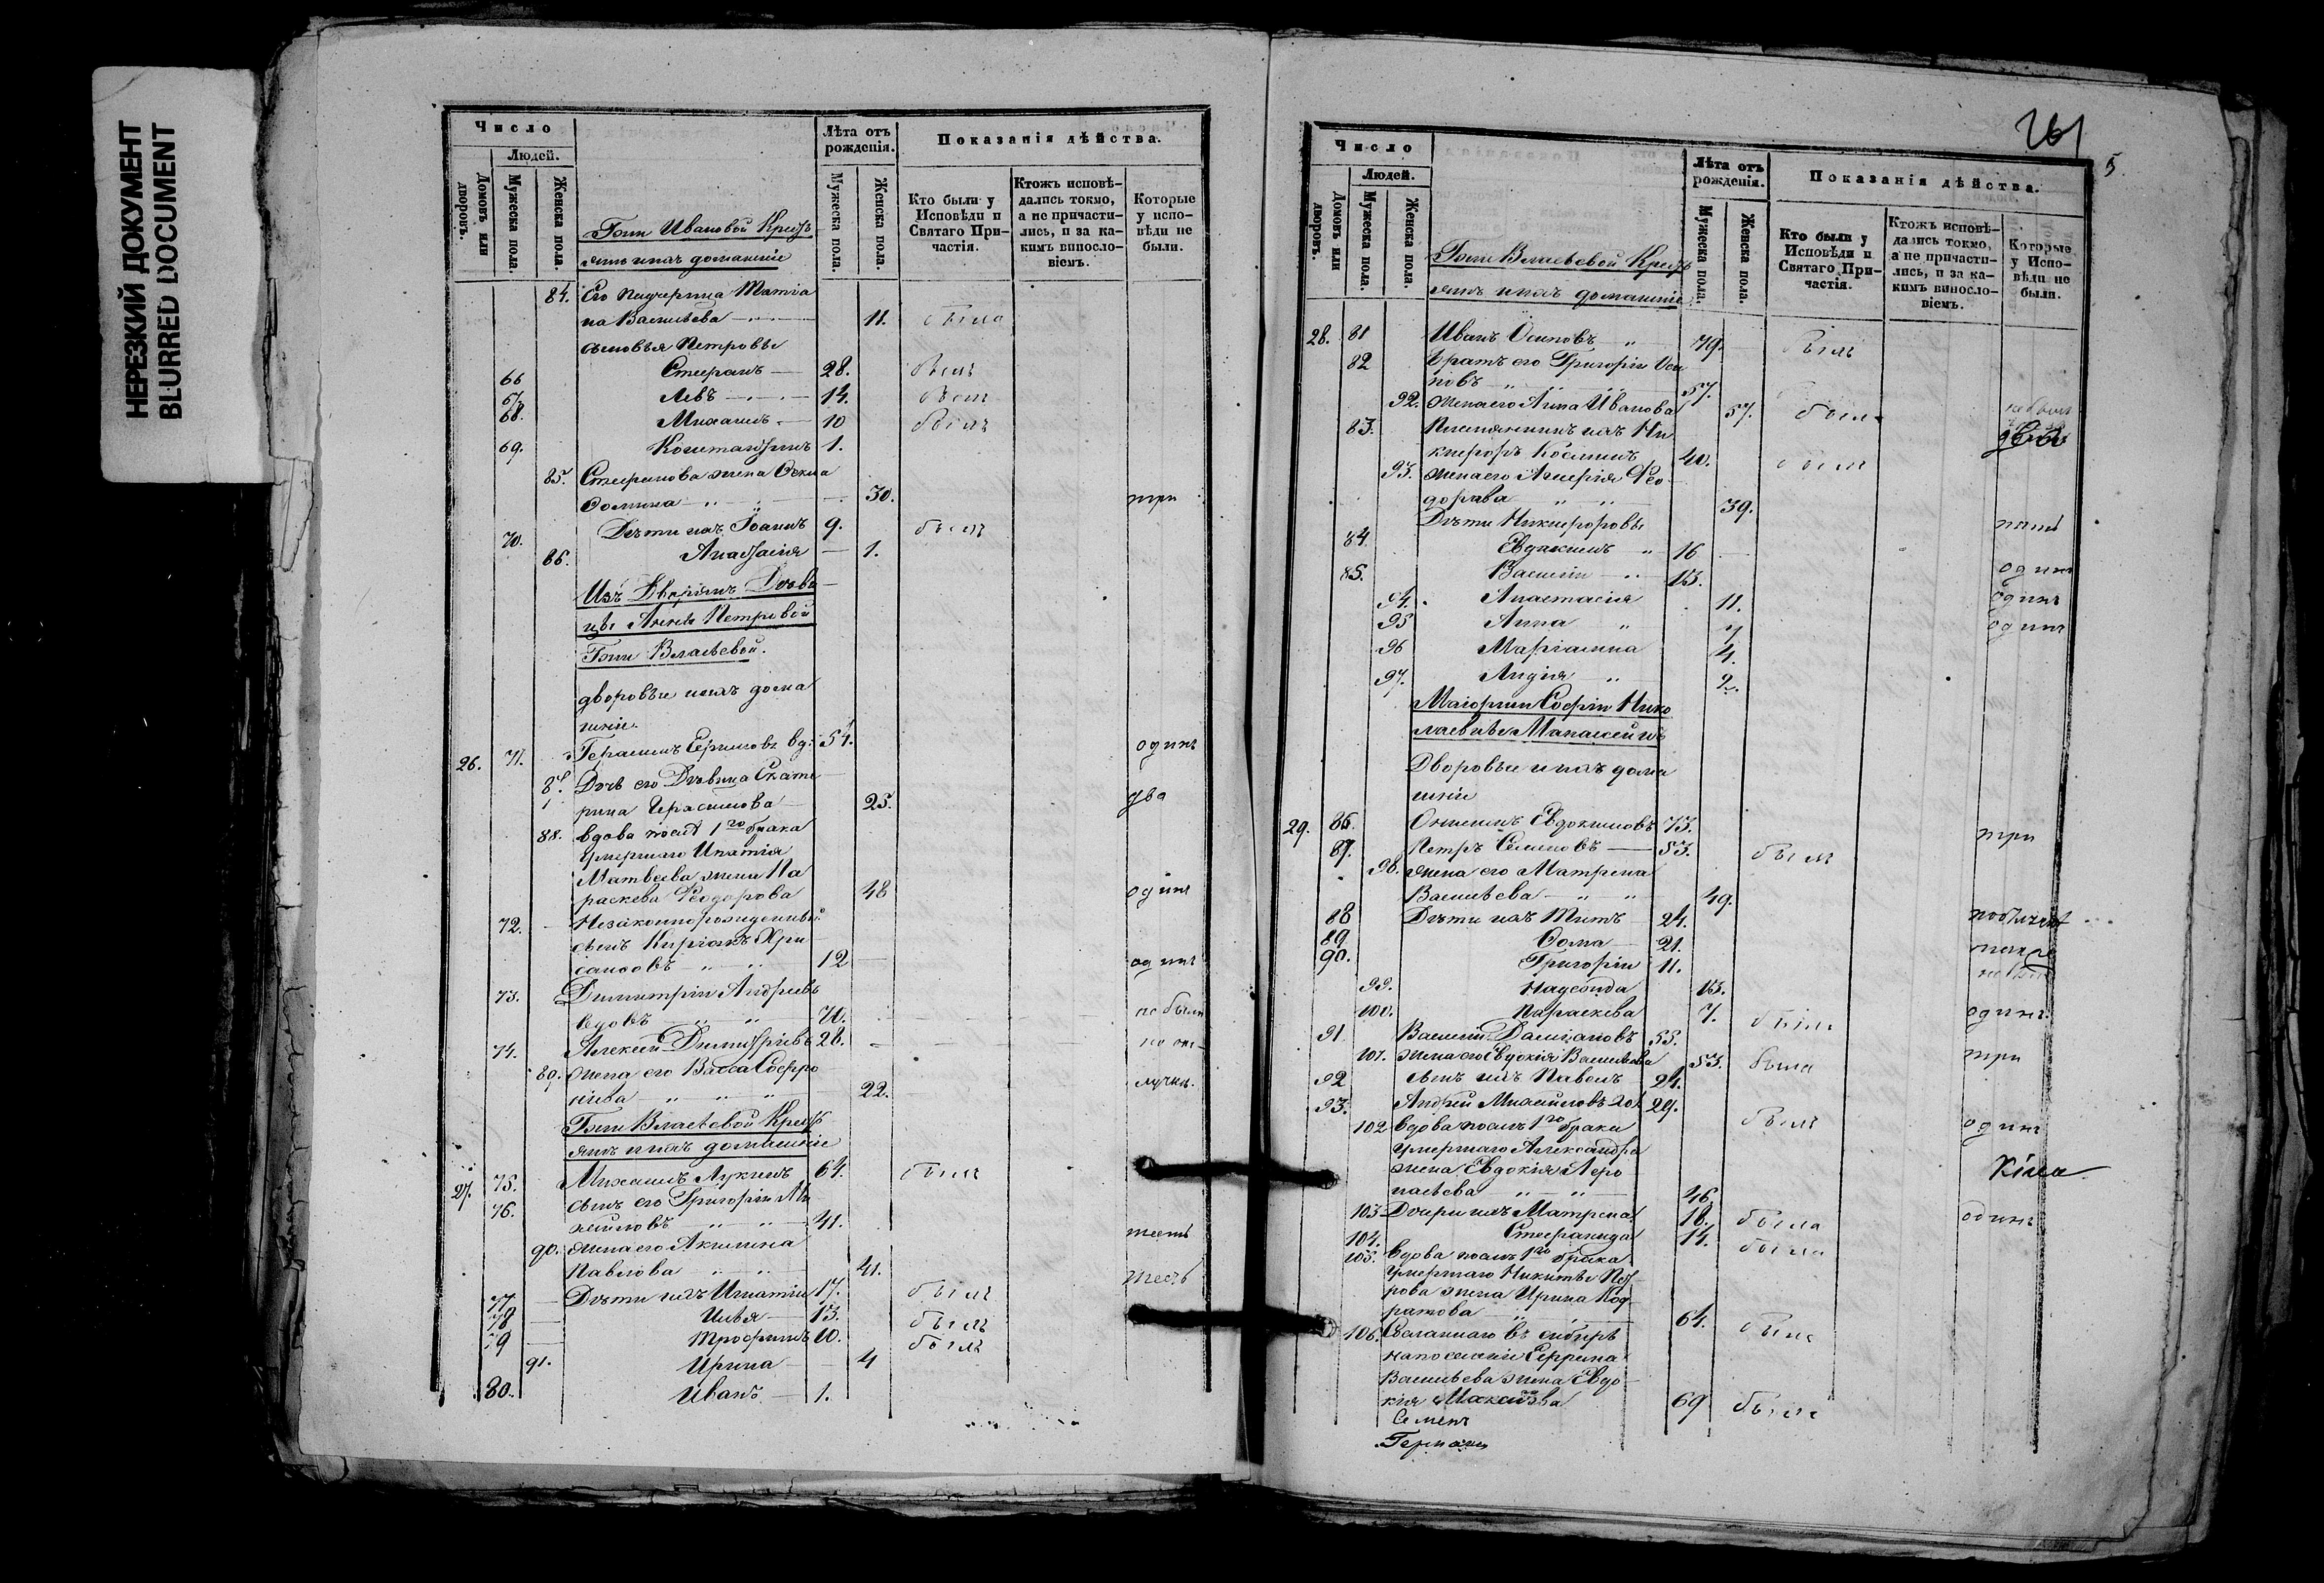 НЕРЕЗКИЙ ДОКУМЕНТ
BLURRED DOCUMENT
Число
Людей.
Домовъ или дворовъ.
Мужеска пола.
Женска пола.
Лѣта отъ рожденія.
Мужеска пола.
Женска пола.
Показанія дѣйства.
Кто были у Исповѣди и Святаго Причастія.
Ктожъ исповѣдались токмо, а не причастились, и за какимъ винословіемъ.
Которые у исповѣди не были.
Гжи Ивановой Кресть
яне и ихъ домашніе
84. Его падчерица
на Васильева 11. была
сыновья Петровы
66 Стефанъ 28. былъ
67. Левъ 14. былъ
68. Михаилъ 10 былъ
69. Константинъ 1.
85. Стефанова жена
Фомина 30. три
70. Дѣти ихъ Іоаннъ 9. былъ
86. Анастасія 1.
Изъ Дворянъ Дѣви
цы Анны Петровой
Гжи Власьевой.
дворовые и ихъ дома
шніе.
26. 71. Герасимъ вд: 54. одинъ
Дочь его Дѣвица Екате
рина Герасимова 25. два
88. вдова послѣ 1го брака
умершаго Ипатія
Матвеева жена Па
раскева Феодорова 48 одинъ
72. Незаконнорожденный
сынъ 12 одинъ
73. Димитрій Андреевъ
вдовъ 70. не былъ
74. Алексей Димитріевъ 28. по от-
89. жена его Васса Софро
нова 22. лучкѣ.
Гжи Власьевой Кресть
яне и ихъ домашніе
27. 75. Михаилъ Лукинъ 64. былъ
76. сынъ его Григорій Ми
хайловъ 41. шесть
90. жена его Акилина
Павлова 41. шесть
77 Дѣти ихъ Игнатій 17. былъ
78 Илья 13. былъ
79 Трофимъ 10. былъ
91. Ирина 4
80. Иванъ 1.
261
5
Число
Людей.
Домовъ или дворовъ.
Мужеска пола.
Женска пола.
Лѣта отъ рожденія.
Мужеска пола.
Женска пола.
Показанія дѣйства.
Кто были у Исповѣди и Святаго Причастія.
Ктожъ исповѣдались токмо, а не причастились, и за какимъ винословіемъ.
Которые у Исповѣди не были.
Гжи Власьевой Кресть
яне и ихъ домашніе
28. 81 Иванъ Осиповъ 79. былъ
82 братъ его Григорій Оси
повъ 57.
92. жена его Анна Иванова 57. была
83. Племянникъ ихъ Ни
кифоръ 40. былъ
93. жена его Фео
дорова 39.
Дѣти Никифоровы
84. Евдокимъ 16
85. Василій 13. одинъ
94. Анастасія 11. одинъ
95 Анна 7 одинъ
96 Маріамна 4.
97. Лидія 2.
Маіорши Софіи Нико
лаевны
Дворовые и ихъ дома
шніе
29. 86. Евдокимовъ 73. три
87. Петръ Семеновъ 53. былъ
98. жена его Матрена
Васильева 49.
88 Дѣти ихъ Титъ 24.
89 Фома 21.
90. Григорій 11.
99. 13.
100. Параскева 7. одинъ.
91 Василій Даміановъ 55.
101. жена его Евдокія Васильева 53. была три
92 сынъ ихъ Павелъ 24.
93. Андрей Михайловъ 29. былъ
102 Вдова послѣ 1го брака одинъ
умершаго Александра
жена Евдокія
46
103 Дочери ихъ Матрена 18. была одинъ
104. Стефанида 14. была
105. Вдова послѣ 1го брака
умершаго Никиты Пет
рова жена Ирина Код
ратова 64. была
106. Сосланнаго въ сибирь
на поселеніе
Васильева жена Евдо
кія 69 была
Семенъ
Германъ